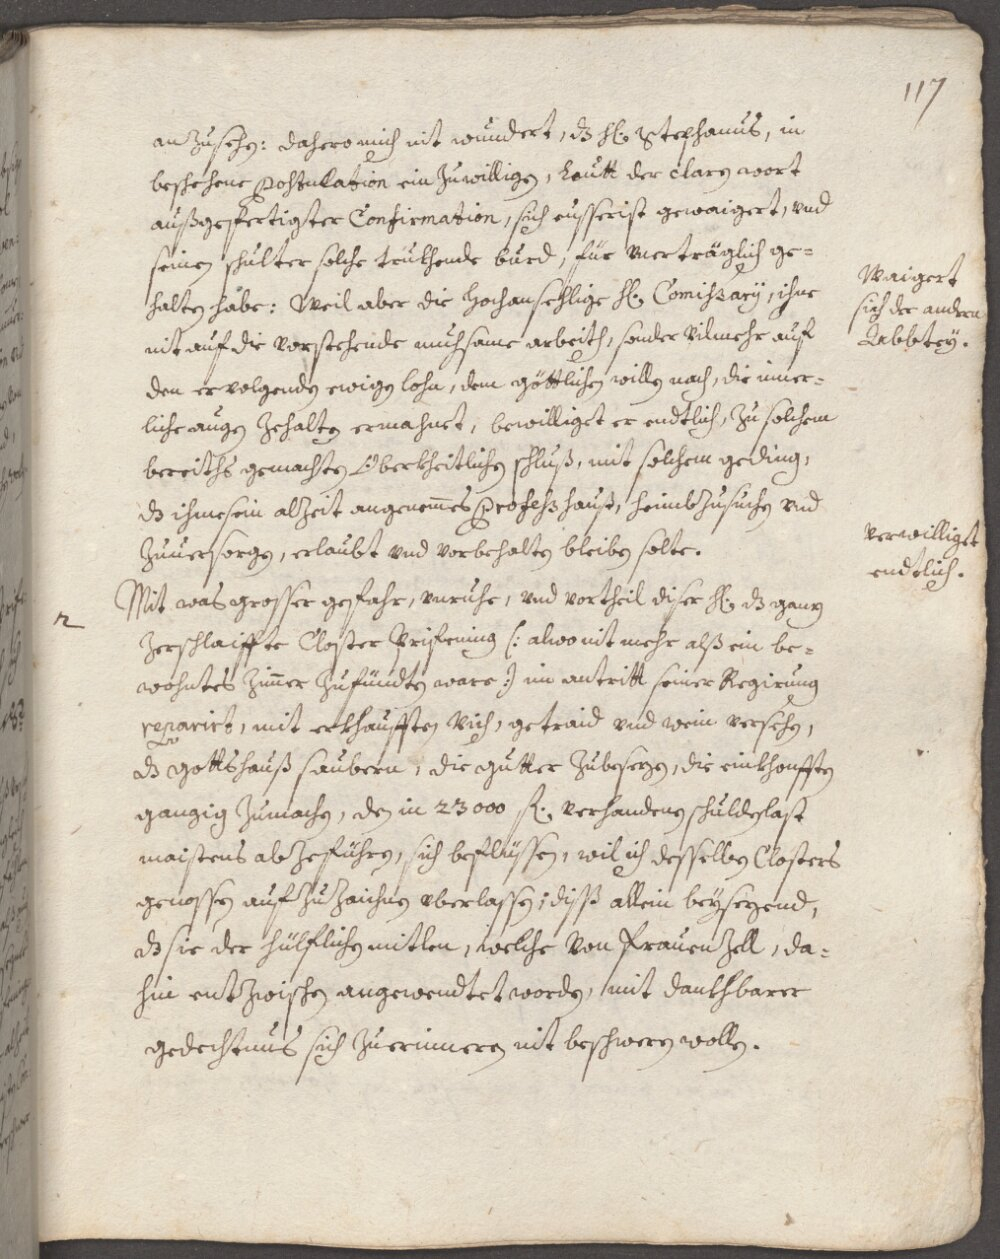 117
anzusehen: dahero mich nit wundert, dz hl. Stephanus, in
beschehene Postulation ein zuwilligen, Lautt der claren wort
außgefertigter Confirmation, sich eusserist gewaigert, vnd
seinen schulter solche trukhende burd, für vnerträglich ge-
halten habe: Weil aber die hochansehlige hl. Comissarÿ, ihne
nit auf die vorstehende muhsame arbeith, sonder vilmehr auf
den ervolgenden ewigen lohn, dem göttlichen willen nach, die inner-
liche augen zehalten ermahnet, bewilliget er endtlich, zu solchem
bereiths gemachten Oberkheitlichen schluß, mit solchem geding,
dz ihme sein alzeit angenemes Professhauß, heimbzusuchen vnd
zuuersorgen, erlaubt vnd vorbehalten bleiben solte.
Waigert
sich der andern
Abbtey.
verwilliget
endtlich.
2
Mit was grosser gefahr, vnruhe, vnd vortheil diser hl. dz ganz
zerschlaiffte Closter Prifening (: alwo nit mehr alß ein be-
wohntes zimer zufündten ware :) im antritt seiner Regirung
reparirt, mit erkhaufften vich, getraid vnd wein versehen,
dz gottshauß saubern, die gütter zubesezen, die einkhonfften
gangig zumachen, den in 23000 fl. verhandenen schuldenlast
maistens abzeführen, sich beflissen, wil ich desselben Closters
genossen aufzuzaichnen vberlassen; diß allein beysezend,
dz sie der hülflichen mitlen, welche von Frauenzell, da-
hin entzwischen angewendtet worden, mit dankhbarer
gedechtnus sich zuerinneren nit beschweren wollen.